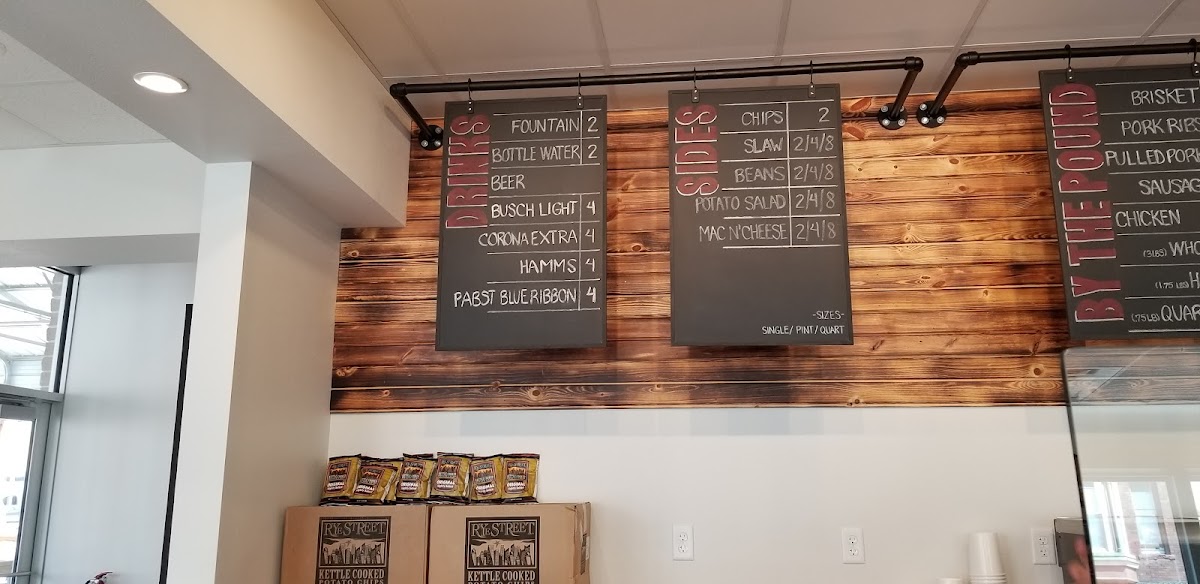 DRINKS
FOUNTAIN 2
BOTTLE WATER 2
BEER
BUSCH LIGHT 4
CORONA EXTRA 4
HAMMS 4
PABST BLUE RIBBON 4
SIDES
CHIPS 2
SLAW 2/4/8
BEANS 2/4/8
POTATO SALAD 2/4/8
MAC N'CHEESE 2/4/8
-SIZES-
SINGLE/ PINT/ QUART
BY THE POUND
BRISKET
PORK RIBS
PULLED PORK
SAUSAG
CHICKEN
(3LBS) WHO
(1.75 LBS) H
(.75LB) QUAR
ORIGINAL
RYE STREET
KETTLE COOKED
POTATO CHIPS
RYE STREET
KETTLE COOKED
POTATO CHIPS